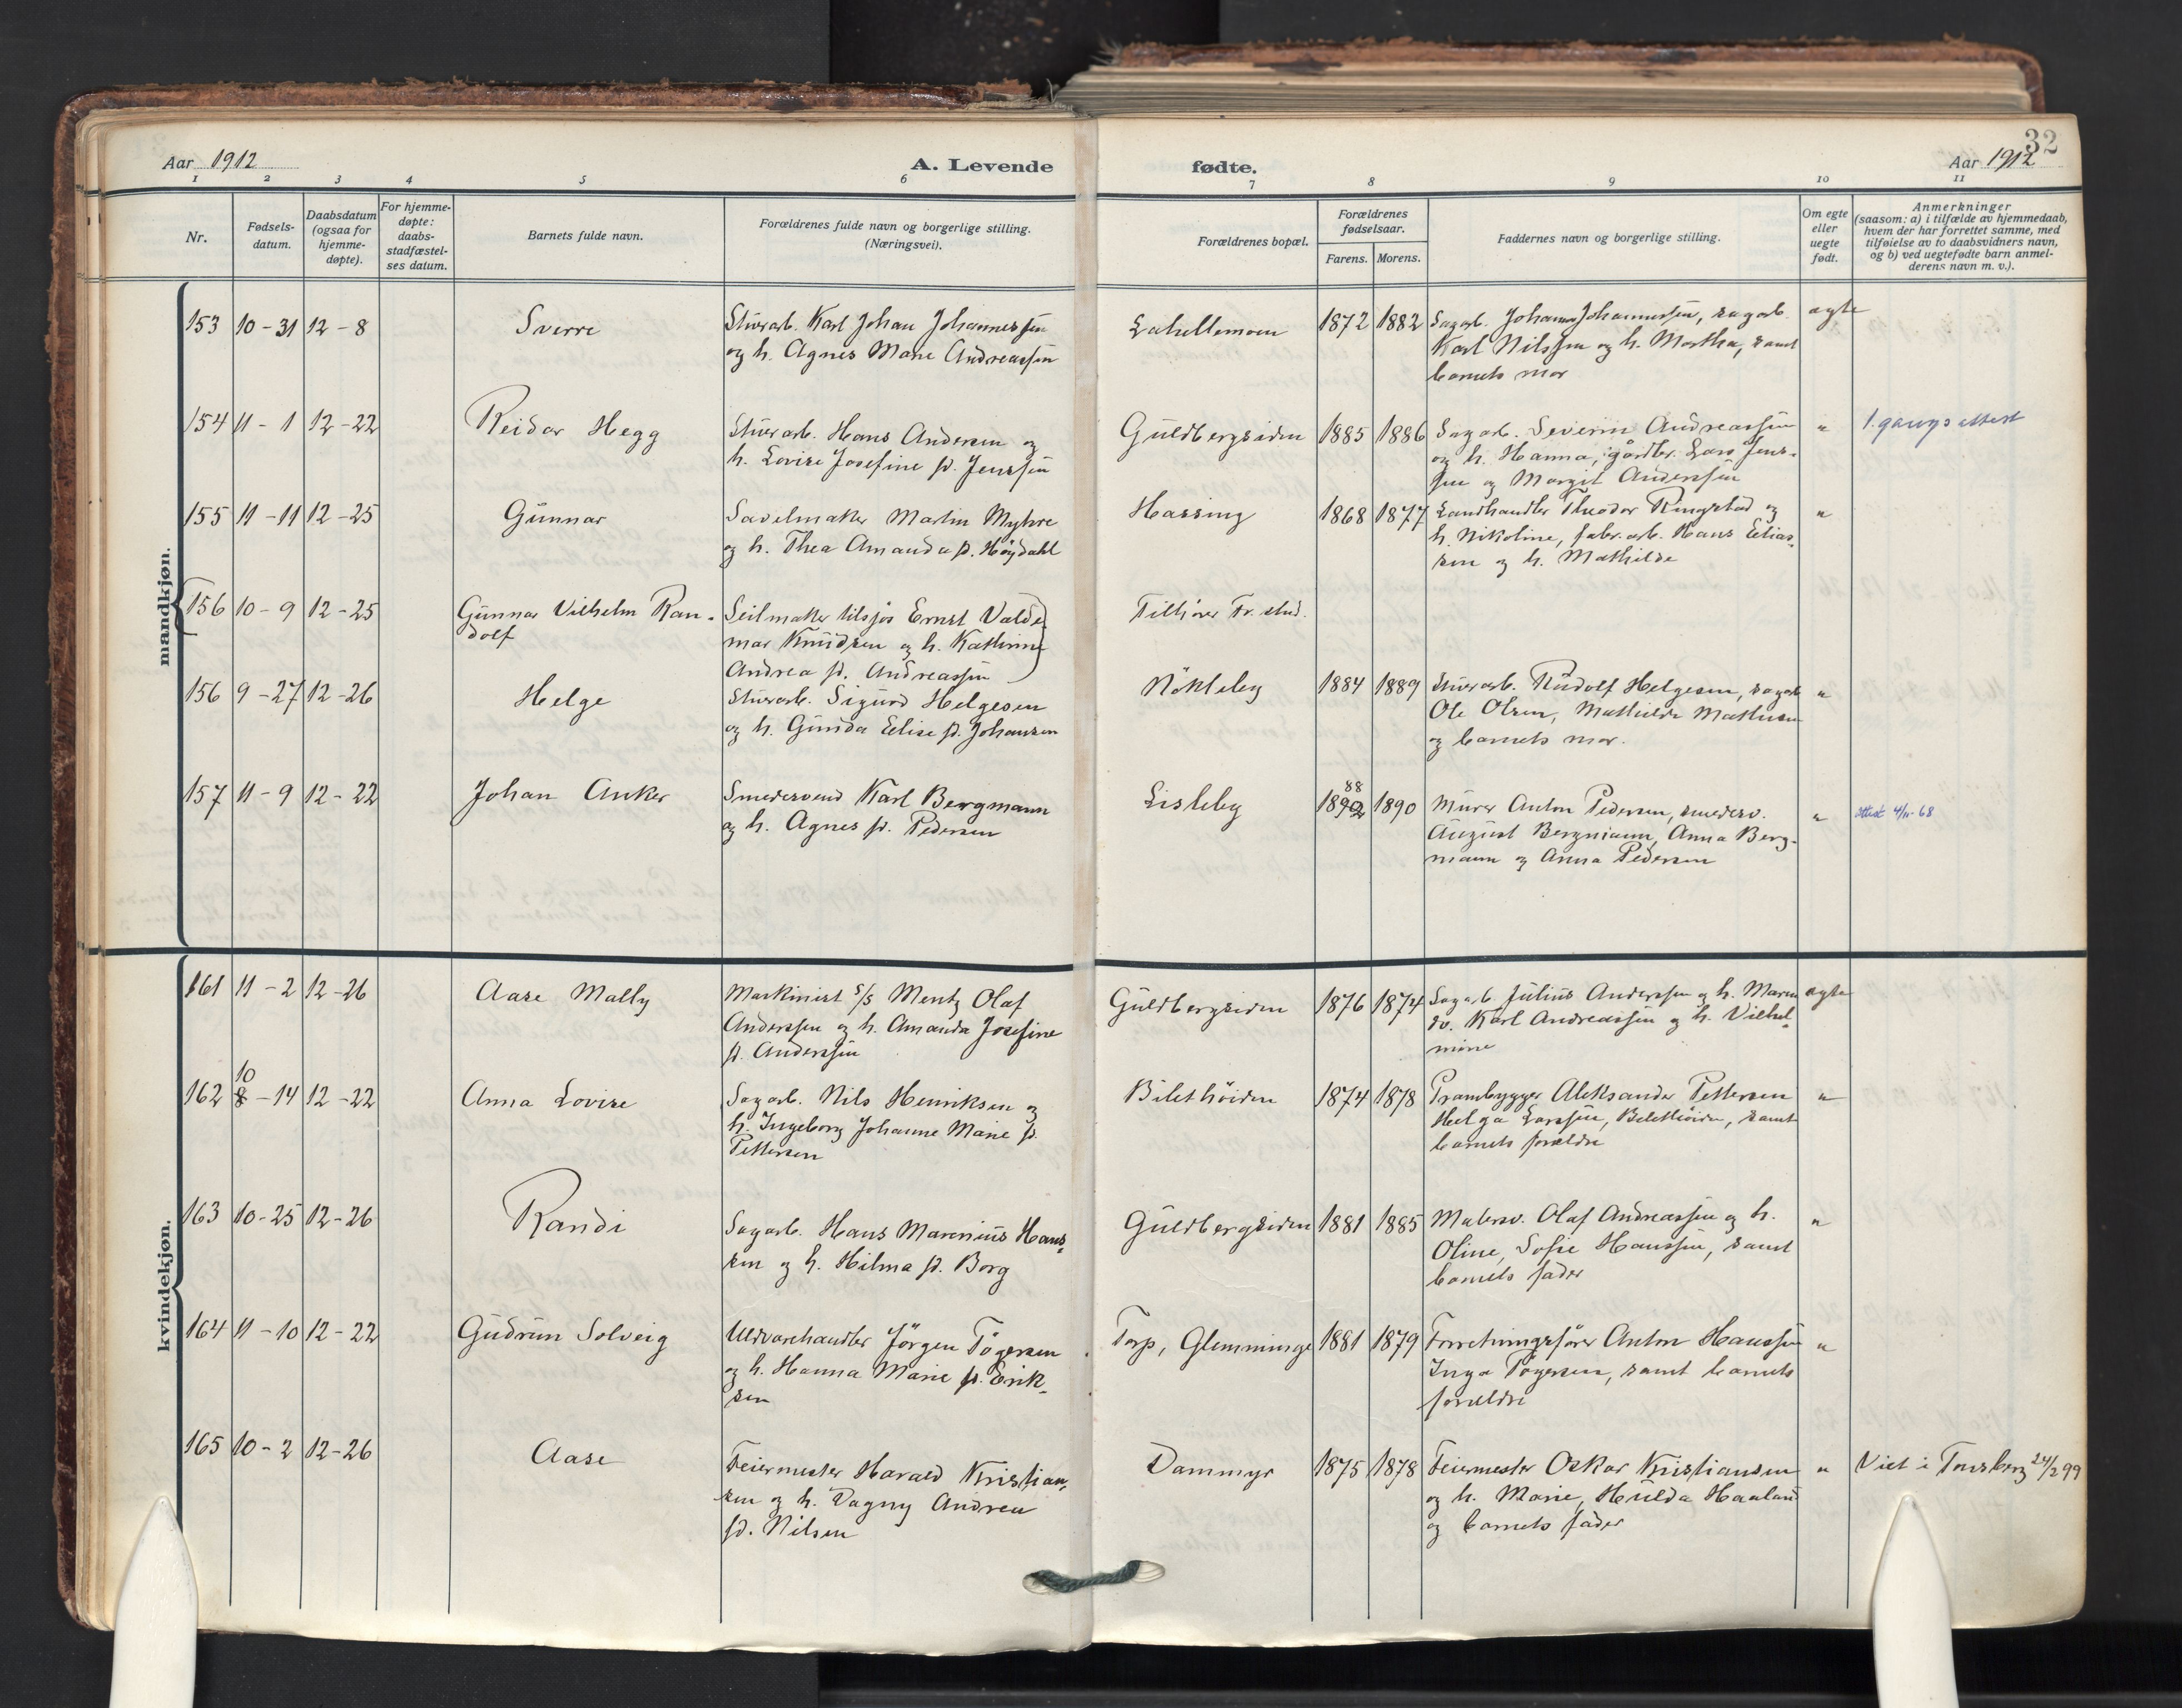 32
Aar 1912 A. Levende fødte. Aar 1912
1 2 3 4 5 6 7 8 9 10 11
Nr.
Fødsels-
datum.
Daabsdatum
(ogsaa for
hjemme-
døpte).
For hjemme-
døpte:
daabs-
stadfæstel-
ses datum.
Barnets fulde navn.
Forældrenes fulde navn og borgerlige stilling.
(Næringsvei).
Forældrenes bopæl.
Forældrenes
fødselsaar.
Farens. Morens.
Faddernes navn og borgerlige stilling.
Om egte
eller
uegte
født.
Anmerkninger
(saasom: a) i tilfælde av hjemmedaab,
hvem der har forrettet samme, med
tilføielse av to daabsvidners navn,
og b) ved uegtefødte barn anmel-
derens navn m. v.).
mandkjøn.
153 10-31 12-8 Sverre
Stuerarb. Karl Johan Johannessen
og h. Agnes Marie Andreassen
Lahellemoen 1872 1882
Sagarb. Johannes Johannessen, sagarb.
Karl Nilssen og h. Martha, samt
barnets mor
egte
154 11-1 12-22 Reidar Hegg
Stuerarb. Hans Andersen og
h. Lovise Josefine f. Jenssen
Guldbergsiden 1885 1886
Sagarb. Severin Andreassen
og h. Hanna, gårdbr. Lars Jens-
sen og Margit Anderssen
" 1. gangs attest
155 11-11 12-25 Gunnar
Sadelmaker Martin Myhre
og h. Thea Amanda f. Høydahl
Hassing 1868 1877
Landhandler Theodor Ringstad og
h. Nikoline, fabr.arb. Hans Elias-
sen og h. Mathilde
"
156 10-9 12-25 Gunnar Vilhelm Ran-
dolf
Seilmaker tilsjøs Ernst Valde-
mar Knudsen og h. Kathrine
Andrea f. Andreassen
Tilhører Fr.stad.
156 9-27 12-26 Helge
Stuerarb. Sigurd Helgesen
og h. Gunda Elise f. Johansen
Nökleby 1884 1889
Stuerarb. Rudolf Helgesen, sagarb.
Ole Olsen, Mathilde Mathisen
og barnets mor.
"
157 11-9 12-22 Johan Anker
Smedesvend Karl Bergmann
og h. Agnes f. Pedersen
Lisleby 88
1892 1890
Murer Anton Pedersen, smedesv.
August Bergmann, Anna Berg-
mann og Anna Pedersen
" attest 4/11-68
kvindekjøn.
161 11-2 12-26 Aase Mally
Maskinist s/s Mentz Olaf
Anderssen og h. Amanda Josefine
f. Anderssen
Guldbergsiden 1876 1874
Sagarb. Julius Anderssen og h. Maren
sv. Karl Andreassen og h. Vilhel-
mine
egte
10
162 8-14 12-22 Anna Lovise
Sagarb. Nils Henriksen og
h. Ingeborg Johanne Marie f.
Pettersen
Bilethöiden 1874 1878
Prambygger Aleksander Pettersen
Helga Larssen, Bilethöiden, samt
barnets forældre
"
163 10-25 12-26 Randi
Sagarb. Hans Marenius Hans-
sen og h. Hilma f. Borg
Guldbergsiden 1881 1885
Malersv. Olaf Andreassen og h.
Oline, Sofie Hanssen, samt
barnets fader
"
164 11-10 12-22 Gudrun Solveig
Uldvarehandler Jörgen Tögersen
og h. Hanna Marie f. Erik-
sen
Torp, Glemminge 1881 1879
Forretningsförer Anton Hanssen
Inga Tögersen, samt barnets
forældre
"
165 10-2 12-26 Aase
Feiermester Harald Kristian-
sen og h. Dagny Andrea
fd. Nilsen
Dammyr 1875 1878
Feiermester Oskar Kristiansen
og h. Marie, Hulda Haaland
og barnets fader
" Viet i Tønsberg 24/2 99